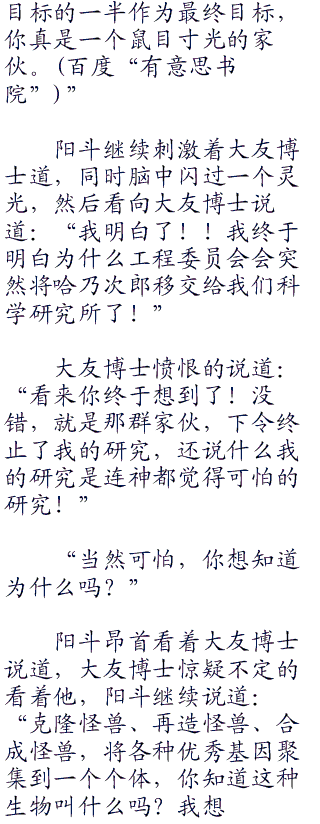 目标的一半作为最终目标，
你真是一个鼠目寸光的家
伙。(百度“有意思书
院”)”
阳斗继续刺激着大友博
士道，同时脑中闪过一个灵
光，然后看向大友博士说
道：“我明白了！！我终于
明白为什么工程委员会会突
然将哈乃次郎移交给我们科
学研究所了！”
大友博士愤恨的说道：
“看来你终于想到了！没
错，就是那群家伙，下令终
止了我的研究，还说什么我
的研究是连神都觉得可怕的
研究！”
“当然可怕，你想知道
为什么吗？”
阳斗昂首看着大友博士
说道，大友博士惊疑不定的
看着他，阳斗继续说道：
“克隆怪兽、再造怪兽、合
成怪兽，将各种优秀基因聚
集到一个个体，你知道这种
生物叫什么吗？我想